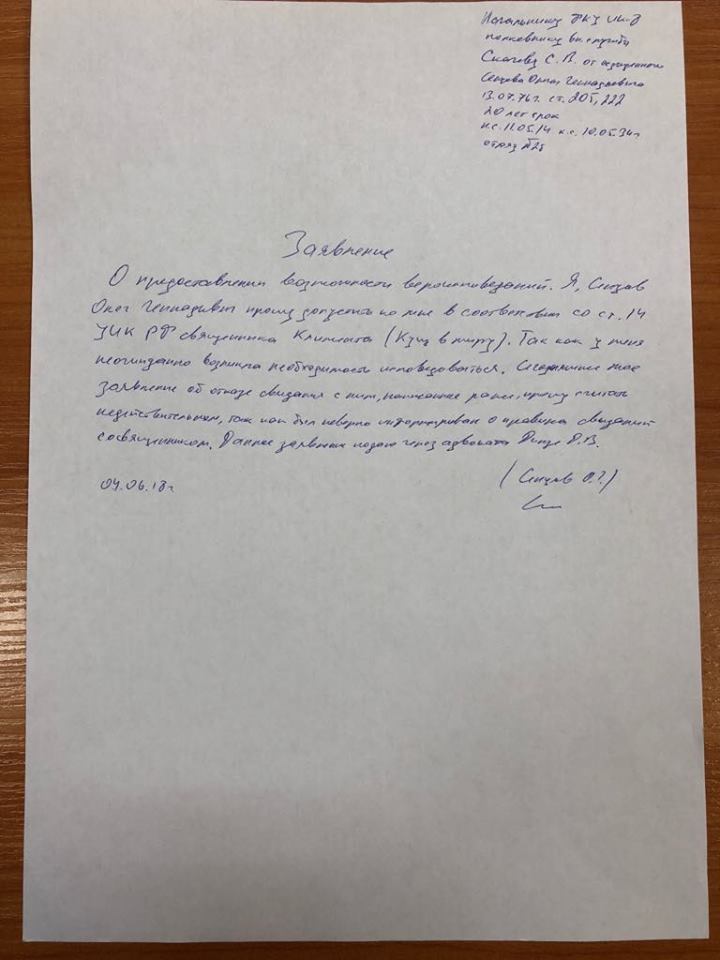 Начальнику ФКУ ИК-8
полковнику вн. службы
С. В. от осужденного
Сенцова Олега Геннадьевича
13.07.76г. ст. 205, 222
20 лет срок
н.с. 11.05.14 к.с. 10.05.34г
отряд
Заявление
О предоставлении возможности вероисповеданий. Я, Сенцов
Олег Геннадьевич прошу допустить ко мне в соответствии со ст. 14
УИК РФ священника Климента (Кущ в миру). Так как у меня
неожиданно возникла необходимость исповедоваться. Сегодняшнее мое
заявление об отказе свидания с ним, написанное ранее, прошу считать
недействительным, так как был неверно информирован о правилах свиданий
со священником. Данное заявление подаю через адвоката Динзе Д.В.
04.06.18г (Сенцов О.Г.)